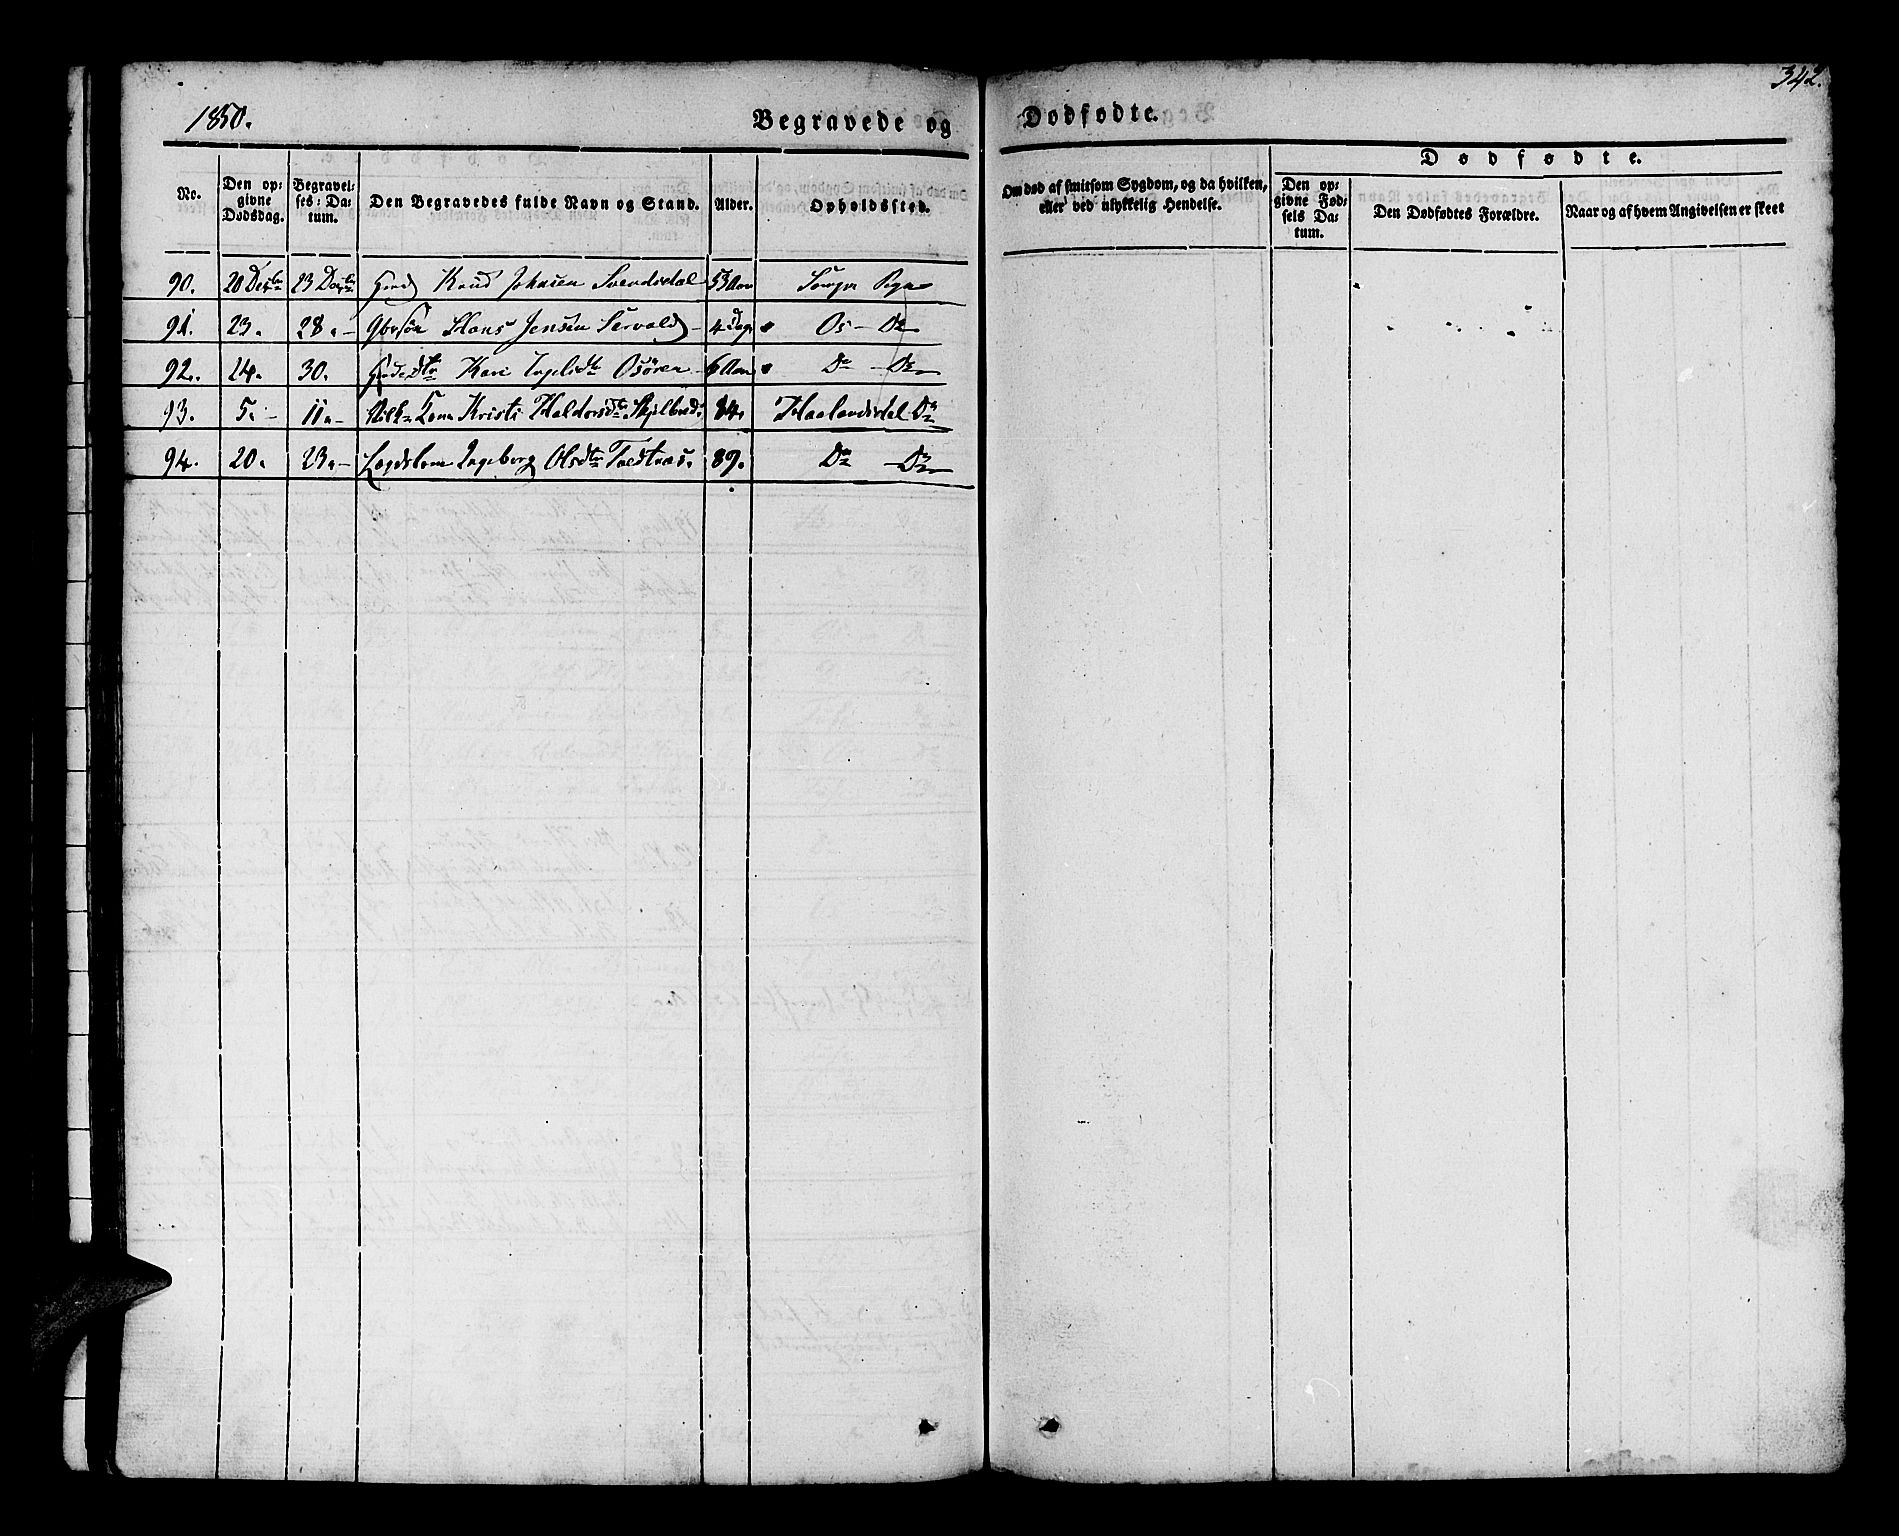 342.
1850.
Begravede og Dødfødte.
Dødfødte.
No.
Den op:
givne
Dødsdag.
Begravel:
ses: Da:
tum.
Den Begravedes fulde Navn og Stand.
Alder.
Opholdssted.
Om død af smitsom Sygdom, og da hvilken,
eller ved ulykkelig Hendelse.
Den op:
givne Fød:
sels Da:
tum.
Den Dødfødtes Forældre.
Naar og af hvem Angivelsen er skeet
90. 20 Decbr 23 Decbr Knud Johnsen Svendsdal 53 Aar Sogn
91. 23. 28. - Hans Jensen 4 Dage Os - Do
92. 24. 30. Kari Osøren 6 Aar Do - Do
93. 5. - 11. - Kone Kristi Haldorsdtr 84. Haalandsdal Do
94. 20. 23. - Lægdslem Ingeborg Olsdtr Tveitnæs. 89. Do - Do